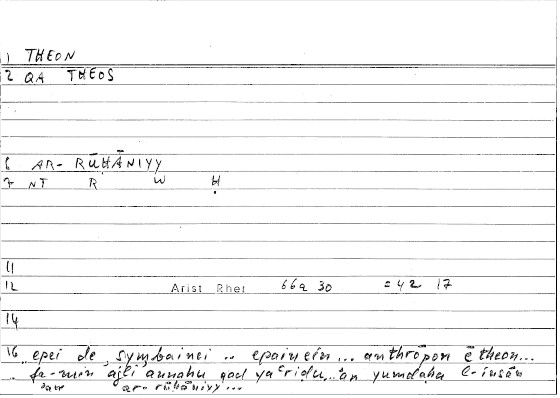 1 THEON
2 QA THEOS
6 AR-RŪḤĀNIYY
7 NT R W Ḥ
11
12 Arist Rhet 66a 30 = 42 17
14
16 epei de symbainei .. epainein... anthrōpon ē theon...
.. fa-min ajli annahu qad yaʿriḍu.. an yumdaḥa l-insān
aw ar-rūḥāniyy...